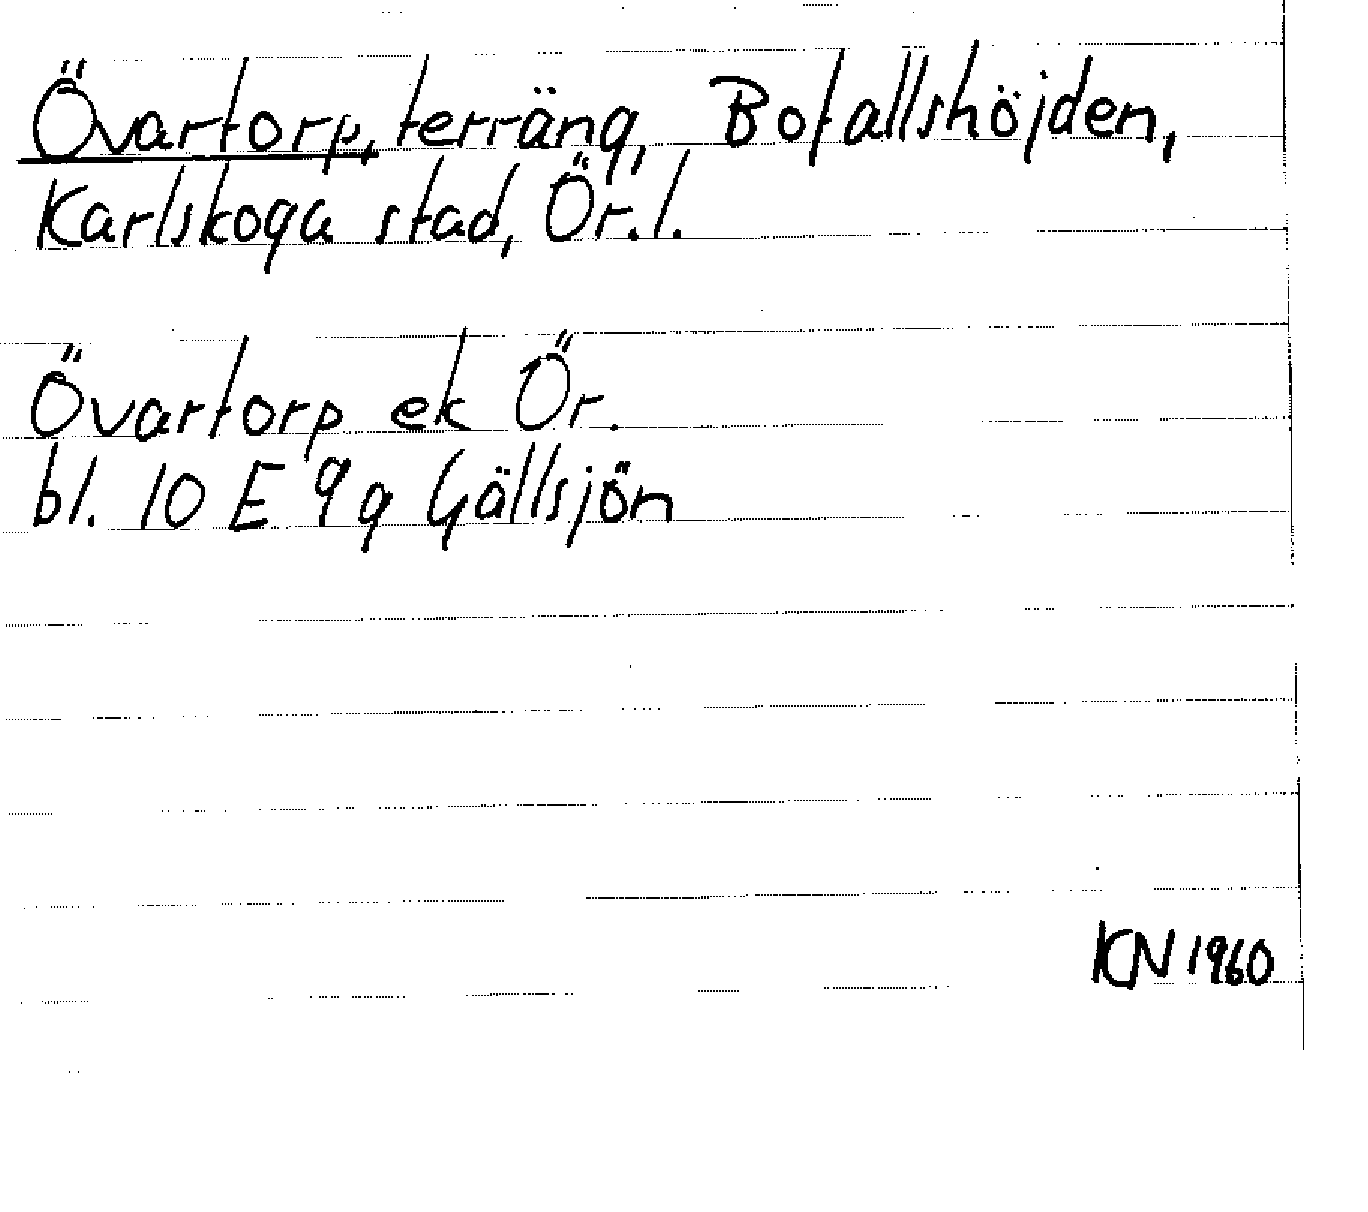 Övartorp, terräng, Bofallshöjden,
Karlskoga stad, Ör. l.
Övartorp ek Ör.
bl. 10 E 9g Gällsjön
KN 1960